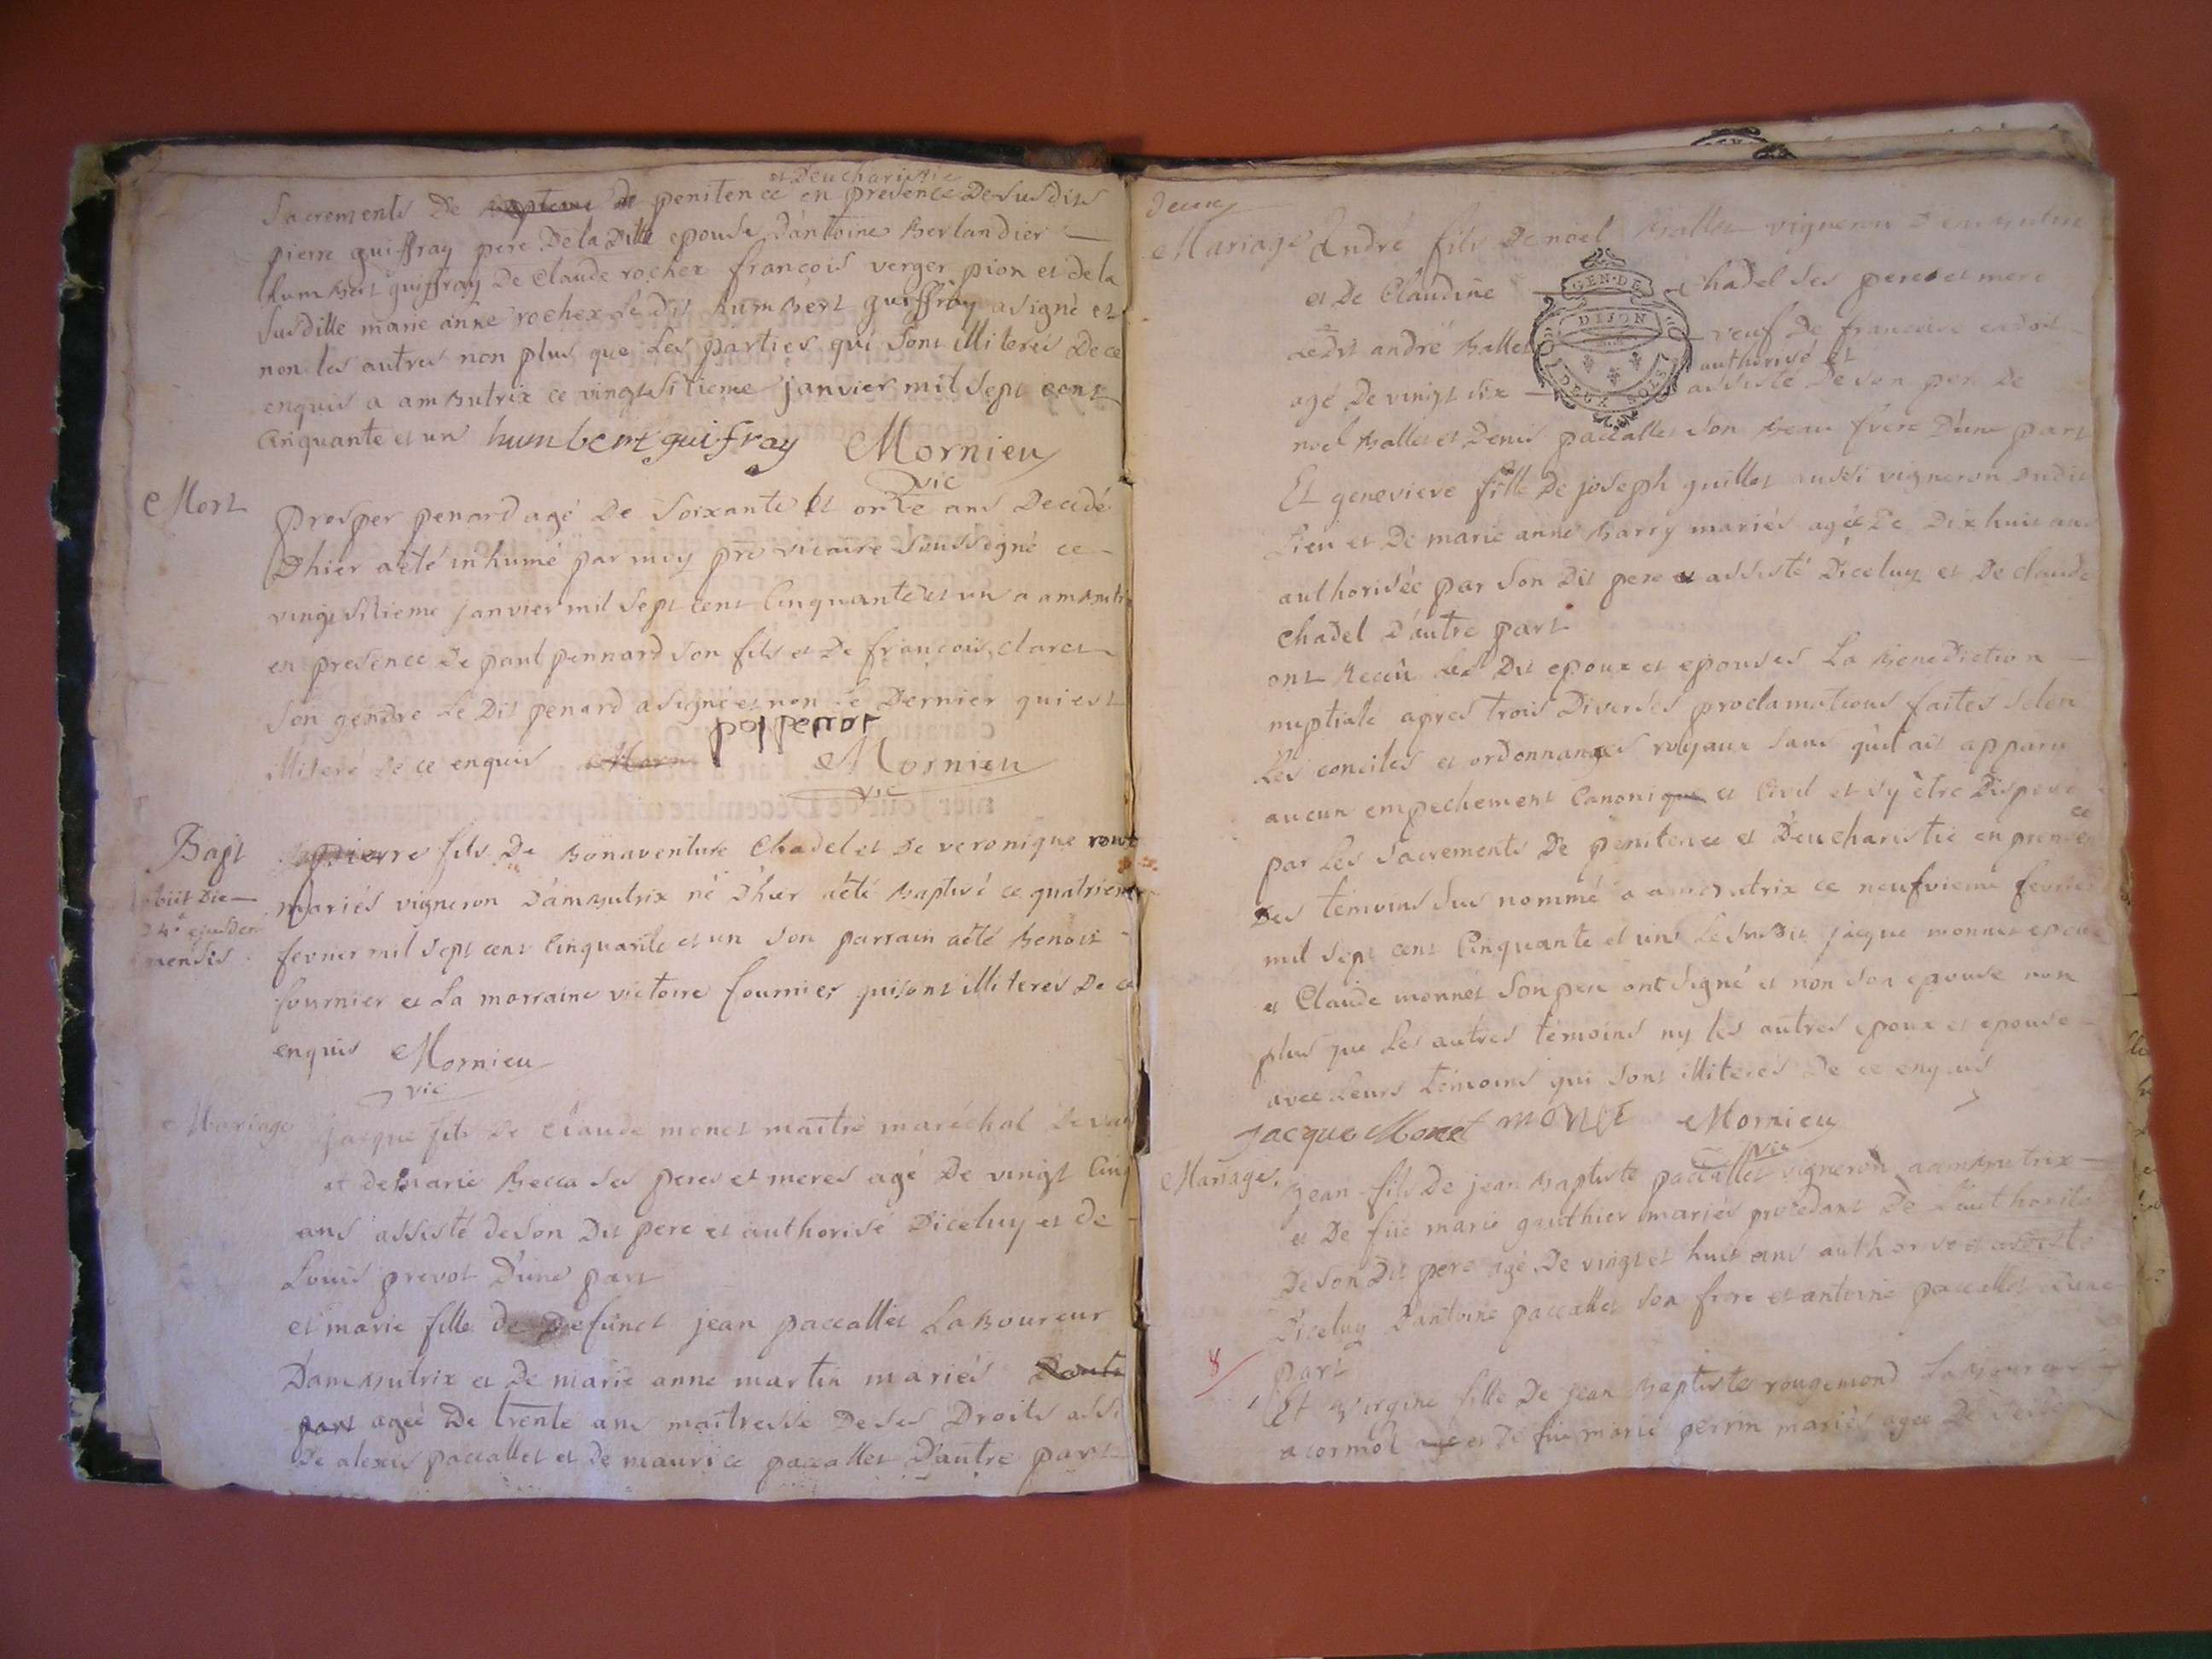 et Deucharistie
Sacrements De baptême de penitence en presence De susdits
pierre guiffray pere De la Ditte epouse D'antoine Berlandier
humbert guiffray De claude rochex francois verger pion et de la
susditte marie anne rochex Le dit humbert guiffray a signé et
non les autres non plus que Les parties qui sont illiterés De ce
enquis a ambutrix ce vingt sitieme janvier mil sept cent
Cinquante et un humbert guifray Mornieu
vic
Mort
prosper penard agé De soixante et onze ans Decedé
D'hier a été inhumé par moy pre vicaire soussigné ce
vingt sitieme janvier mil sept cent Cinquante et un a ambutrix
en presence De paul pennard son fils et De francois claret
son gendre Le Dit penard a signé et non le Dernier qui est
illiteré De ce enquis Morn Mornieu
vic
Bapt
obiit Die
24a ejusdem
mensis
pierre fils De Bonaventure Chadel et De veronique rout
mariés vigneron D'ambutrix né D'hier a été Baptisé ce quatrieme
fevrier mil sept cent Cinquante et un son parrain a été Benoit
fournier et La marraine victoire fournier qui sont illiterés De ce
enquis Mornieu
vic
Mariage
Jacque fils De Claude monet maitre maréchal De vau
et de marie Becca ses peres et meres agé De vingt Cinq
ans assisté de son Dit pere et authorisé Diceluy et de
Louis prevot D'une part
et marie fille de Defunct jean paccallet LaBoureur
Dambutrix et De marie anne martin mariés D'autre
part ageé De trente ans maitresse De ses Droits assi
De alexis paccallet et De maurice paccallet D'autre part
Deux
Mariage
André fils De noel Ballet vigneron D'ambutrix
et De Claudine Chadel ses peres et mere
GEN.DE
DIJON
DEUX SOLS
Le Dit andré Ballet veuf De francoise
authorisé et
agé De vingt six assisté De son pere De
noel Ballet et Denis paccallet son Beau frere D'une part
Et genevieve fille De joseph guillet aussi vigneron audit
Lieu et De marie anne Barry mariés agée De Dix huit ans
authorisée par son Dit pere et assisté Diceluy et De claude
chadel D'autre part
ont Receu Les Dit epoux et epouses La Benediction
nuptiale apres trois Diverses proclamations faites selon
Les conciles et ordonnances royaux sans qu'il ait apparu
aucun empechement Canonique et Civil et s'y être Disposé
par Les sacrements De penitence et D'eucharistie en presence
Des temoins sus nommé a ambutrix ce neufvieme fevrier
mil sept cent Cinquante et un Le susdit jacque monnet epoux
et Claude monnet son pere ont signé et non son epouse non
plus que Les autres temoins ny les autres epoux et epouse
avec Leurs temoins qui sont illiterés De ce enquis
Jacque Monet MONET Mornieu
vic
Mariage
Jean fils De jean Baptiste paccallet vigneron a ambutrix
et De fue marie gauthier mariés procedant De L'authorité
De son Dit pere agé De vingt et huit ans authorisé et assisté
Diceluy D'antoine paccallet son frere et antoine paccallet D'une
part
8
Et virgine fille De jean Baptiste rougemond LaBoureur
a cormoz et De fue marie perrin mariés agée De